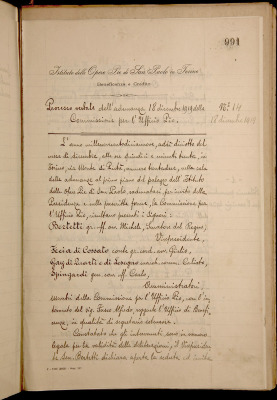 991
Istituto delle Opere Pie di San Paolo in Torino
Beneficenza e Credito
Processo verbale dell'adunanza 18 dicembre 1919 della
Commissione per l'Ufficio Pio.
N.° 14
18 dicembre 1919
L'anno millenovecentodiciannove, addì diciotto del
mese di dicembre, alle ore quindici e minuti trenta, in
Torino, via Monte di Pietà, numero trentadue, nella sala
delle adunanze al primo piano del palazzo dell'Istituto
delle Opere Pie di San Paolo, radunatasi per invito della
Presidenza e nelle prescritte forme, la Commissione per
l'Ufficio Pio, risultano presenti i Signori:
Bertetti gr. uff. avv. Michele, Senatore del Regno,
Vicepresidente,
Fecia di Cossato conte gr. cord. avv. Giulio,
Gay di Quarti e di Lesegno
Spingardi gen. comm. uff. Carlo,
Amministratori,
membri della Commissione per l'Ufficio Pio, con l'in-
tervento del sig. Alfredo, reggente l'Ufficio di Benefi-
cenza, in qualità di segretario
Constatato che gli intervenuti sono in numero
legale per la validità delle deliberazioni, il Vicepresiden-
te Sen. Bertetti dichiara aperta la seduta ed invita